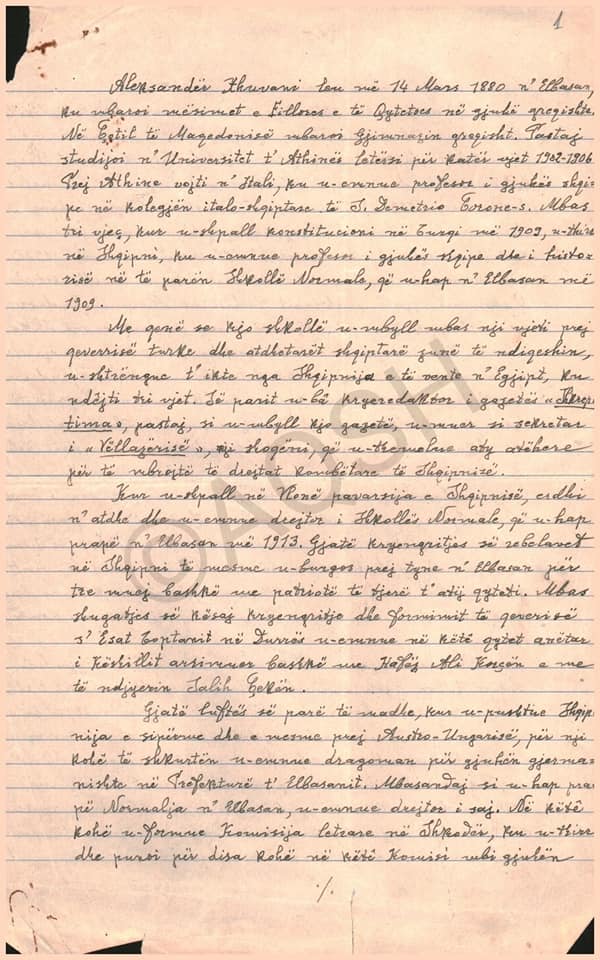 1
Aleksandër Xhuvani leu më 14 Mars 1880 n' Elbasan,
ku mbaroi mësimet e Fillores e të Qytetces në gjuhë greqishte.
Në Egtil të Maqedonisë mbaroi Gjimnazin greqisht. Pastaj
studjoi n' Universitet t' Athinës letërsi për katër vjet 1902-1906.
Prej Athine vojti n' Itali, ku u-emnue profesor i gjuhës shqi-
pe në kolegjën italo-shqiptare të S. Demetrio Corone-s. Mbas
tri vjeç, kur u-shpall konstitucioni në Turqi më 1909, u-thirr
në Shqipni, ku u-emnue profesor i gjuhës shqipe dhe i histo-
risë në të parën Shkollë Normale, që u-hap n' Elbasan më
1909.
Me qenë se kjo shkollë u-mbyll mbas nji vjeti prej
qeverrisë turke dhe atdhetarët shqiptarë zunë të ndiqeshin,
u-shtrëngue t' ikte nga Shqipnija e të vente n' Egjipt, ku
ndêjti tri vjet. Së parit u-bâ kryeredaktor i gazetës «Shkrep-
tima», pastaj, si u-mbyll kjo gazetë, u-muer si sekretar
i «Vëllazërisë», nji shoqëni, që u-themelue aty atëhere
për të mbrojtë të drejtat kombëtare të Shqipnisë.
Kur u-shpall në Vlonë pavarsija e Shqipnisë, erdhi
n' atdhe dhe u-emnue drejtor i Shkollës Normale, që u-hap
prapë n' Elbasan më 1913. Gjatë kryengritjes së rebelavet
në Shqipni të mesme u-burgos prej tyne n' Elbasan për
tre muej bashkë me patriotë të tjerë t' atij qyteti. Mbas
shugatjes së kësaj kryengritje dhe formimit të qeverisë
s' Esat Toptanit në Durrës u-emnue në këtë qytet anëtar
i Këshillit arsimuer bashkë me Hafëz Ali Korçën e me
të ndjyerin Salih Çekën.
Gjatë luftës së parë të madhe, kur u-pushtue Shqip-
nija e sipërme dhe e mesme prej Austro-Ungarisë, për nji
kohë të shkurtën u-emnue dragoman për gjuhën gjerma-
nishte në Prefekturë t' Elbasanit. Mbasandaj si u-hap pra-
pë Normalja n' Elbasan, u-emnue drejtor i saj. Në këtë
kohë u-formue Komisija letrare në Shkodër, ku u-thirr
dhe punoi për disa kohë në këtë Komisi mbi gjuhën
./.
©AQSH